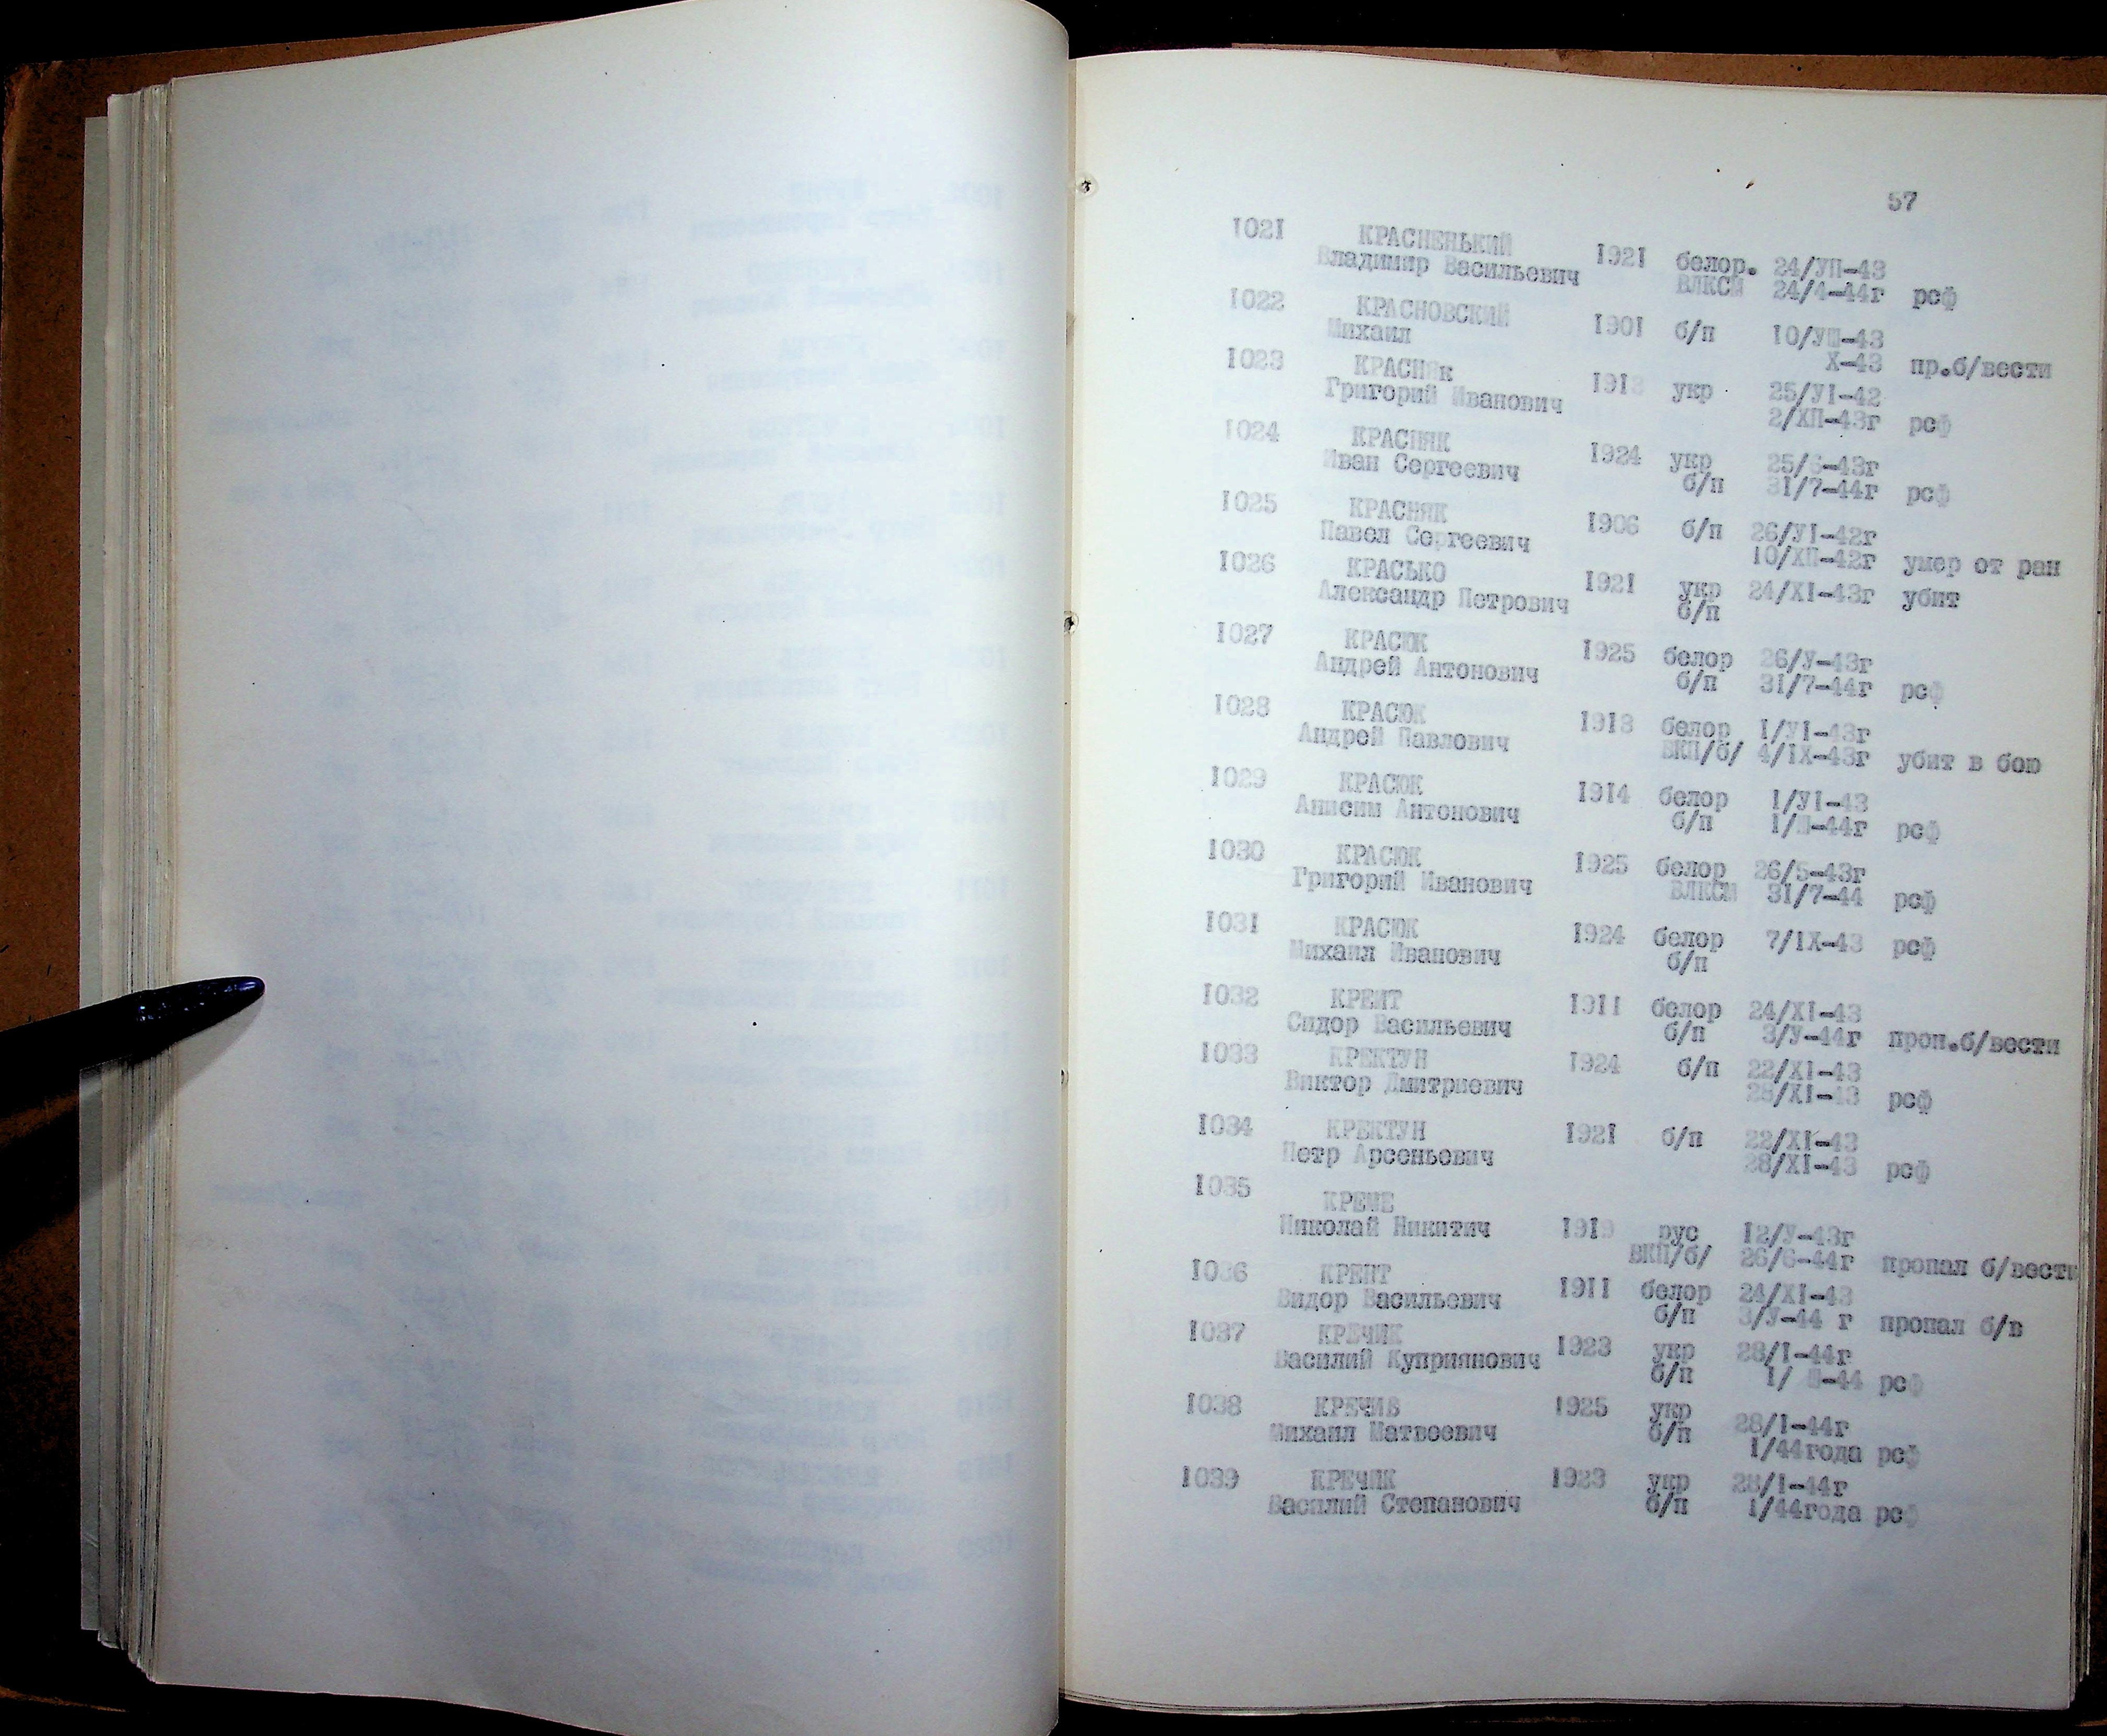 57
1021 КРАСНЕНЬКИЙ
Владимир Васильевич 1921 белор. 24/УП-43
ВЛКСМ 24/4-44г рсф
1022 КРАСНОВСКИЙ
Михаил 1901 б/п 10/УШ-43
Х-43 пр.б/вести
1023 КРАСНЯк
Григорий Иванович 1913 укр 25/У1-42
2/ХП-43г рсф
1024 КРАСНЯК
Иван Сергеевич 1924 укр 25/6-43г
б/п 31/7-44г рсф
1025 КРАСНЯК
Павел Сергеевич 1906 б/п 26/У1-42г
10/ХП-42г умер от ран
1026 КРАСЬКО
Александр Петрович 1921 укр 24/Х1-43г убит
б/п
1027 КРАСЮК
Андрей Антонович 1925 белор 26/У-43г
б/п 31/7-44г рсф
1028 КРАСЮК
Андрей Павлович 1913 белор 1/У1-43г
ВКП/б/ 4/1Х-43г убит в бою
1029 КРАСЮК
Анисим Антонович 1914 белор 1/У1-43
б/п 1/Ш-44г рсф
1030 КРАСЮК
Григорий Иванович 1925 белор 26/5-43г
ВЛКСМ 31/7-44 рсф
1031 КРАСЮК
Михаил Иванович 1924 белор 7/1Х-43 рсф
б/п
1032 КРЕИТ
Сидор Васильевич 1911 белор 24/Х1-43
б/п 3/У-44г проп.б/вести
1033 КРЕКТУН
Виктор Дмитриевич 1924 б/п 22/Х1-43
28/Х1-43 рсф
1034 КРЕКТУН
Петр Арсеньевич 1921 б/п 22/Х1-43
28/Х1-43 рсф
1035
КРЕМЕ
Николай Никитич 1919 рус 12/У-43г
ВКП/б/ 26/6-44г пропал б/вести
1036 КРЕНТ
Видор Васильевич 1911 белор 24/Х1-43
б/п 3/У-44 г пропал б/в
1037 КРЕЧИК
Василий Куприянович 1923 укр 28/1-44г
б/п 1/ Ш-44 рсф
1038 КРЕЧИВ
Михаил Матвеевич 1925 укр 28/1-44г
б/п 1/44года рсф
1039 КРЕЧИК
Василий Степанович 1923 укр 28/1-44г
б/п 1/44года рсф